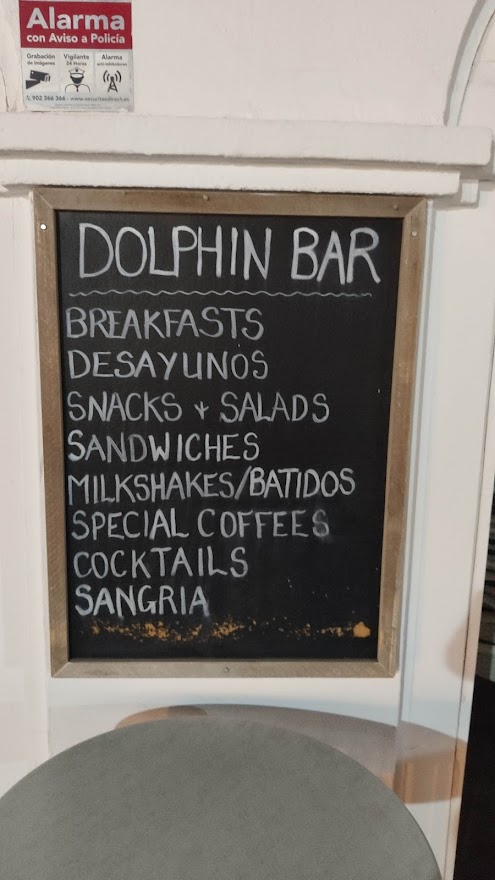 Alarma
con Aviso a Policía
Grabación de imágenes
Vigilante 24 Horas
Alarma anti-inhibidores
902 366 366 - www.securitasdirect.es
DOLPHIN BAR
BREAKFASTS
DESAYUNOS
SNACKS + SALADS
SANDWICHES
MILKSHAKES/BATIDOS
SPECIAL COFFEES
COCKTAILS
SANGRIA